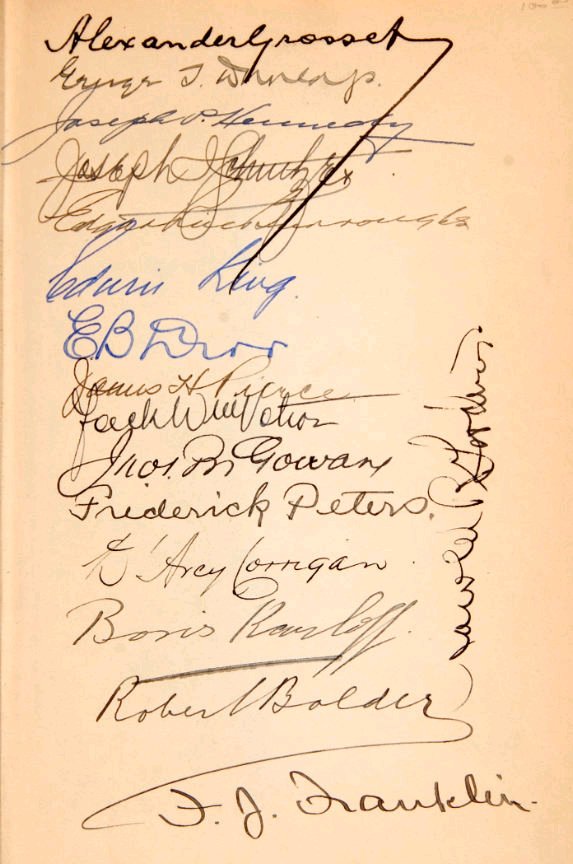 Alexander Grosset
George T. Dunlap.
Joseph P. Kennedy
Joseph I Schnitzer
Edgar Rice Burroughs
Edwin King.
E B Derr
James H Pierce
Jack W
Gowan
Frederick Peters.
D'Arcy Corrigan
Boris Karloff.
Robert Bolder
F. J. Franklin.
Harold R